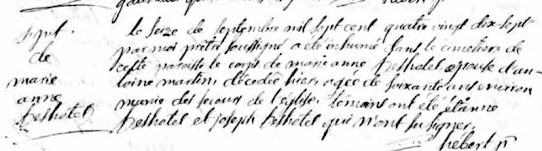 sept.
de
marie
anne
Deshotel
le seize de septembre mil sept cent quatre vingt dix sept
par moi prêtre soussigné a été inhumé dans le cimetiere de
cette paroisse le corps de marie anne Deshotel epouse d'an-
toine martin décédée hier agée de soixante ans environ
munie des secours de l'église. témoins ont été étienne
Deshotel et joseph Deshotel qui n'ont su signer.
hébert p